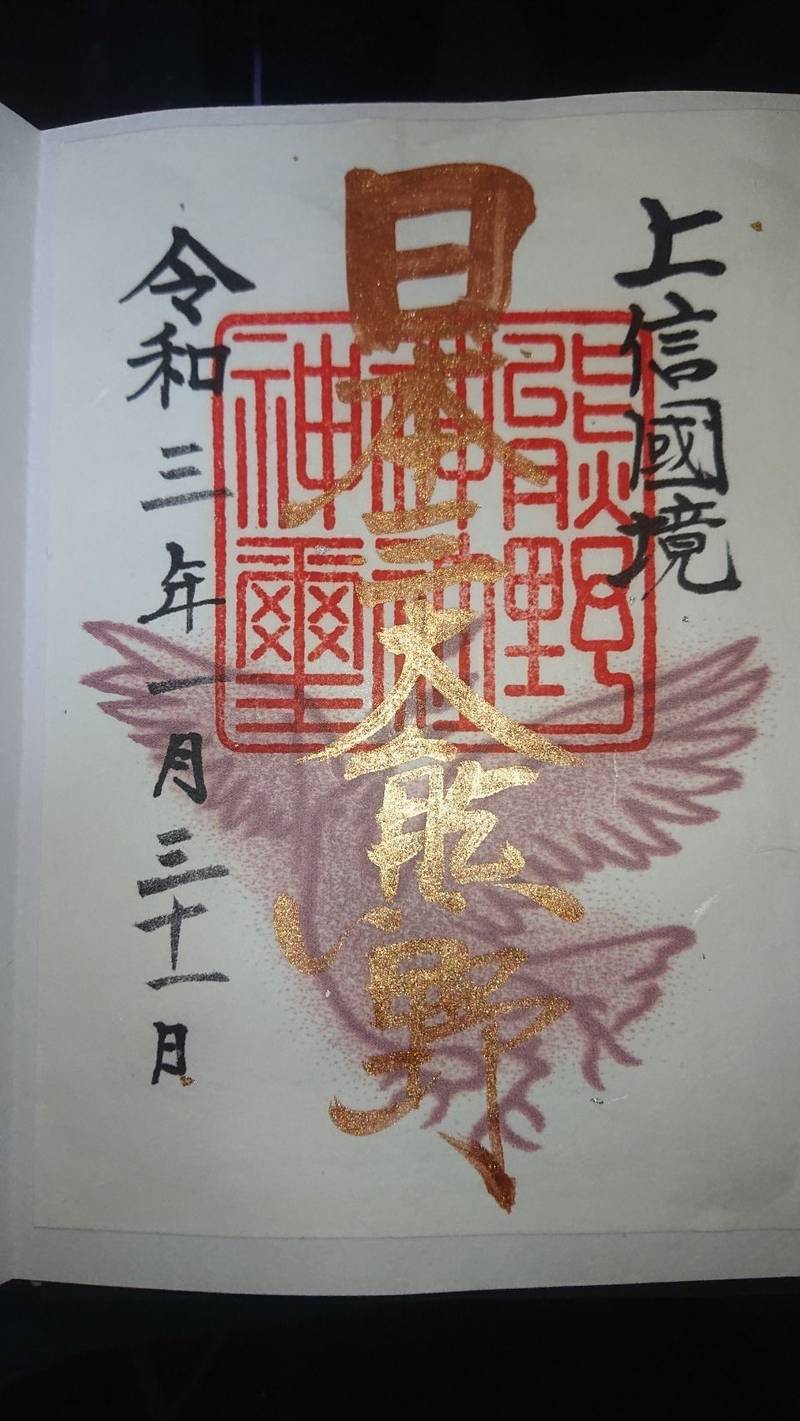 上信國境
日本三大熊野
熊野
神社
神璽
令和三年一月三十一日